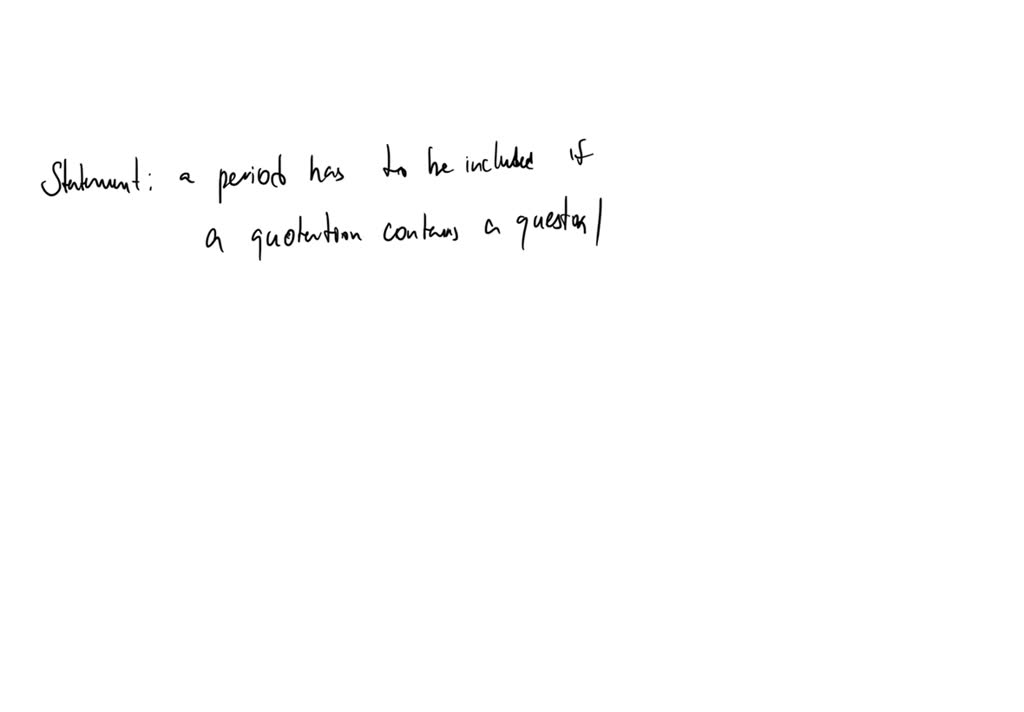 Statement: a period has to be included if
a quotation contains a question